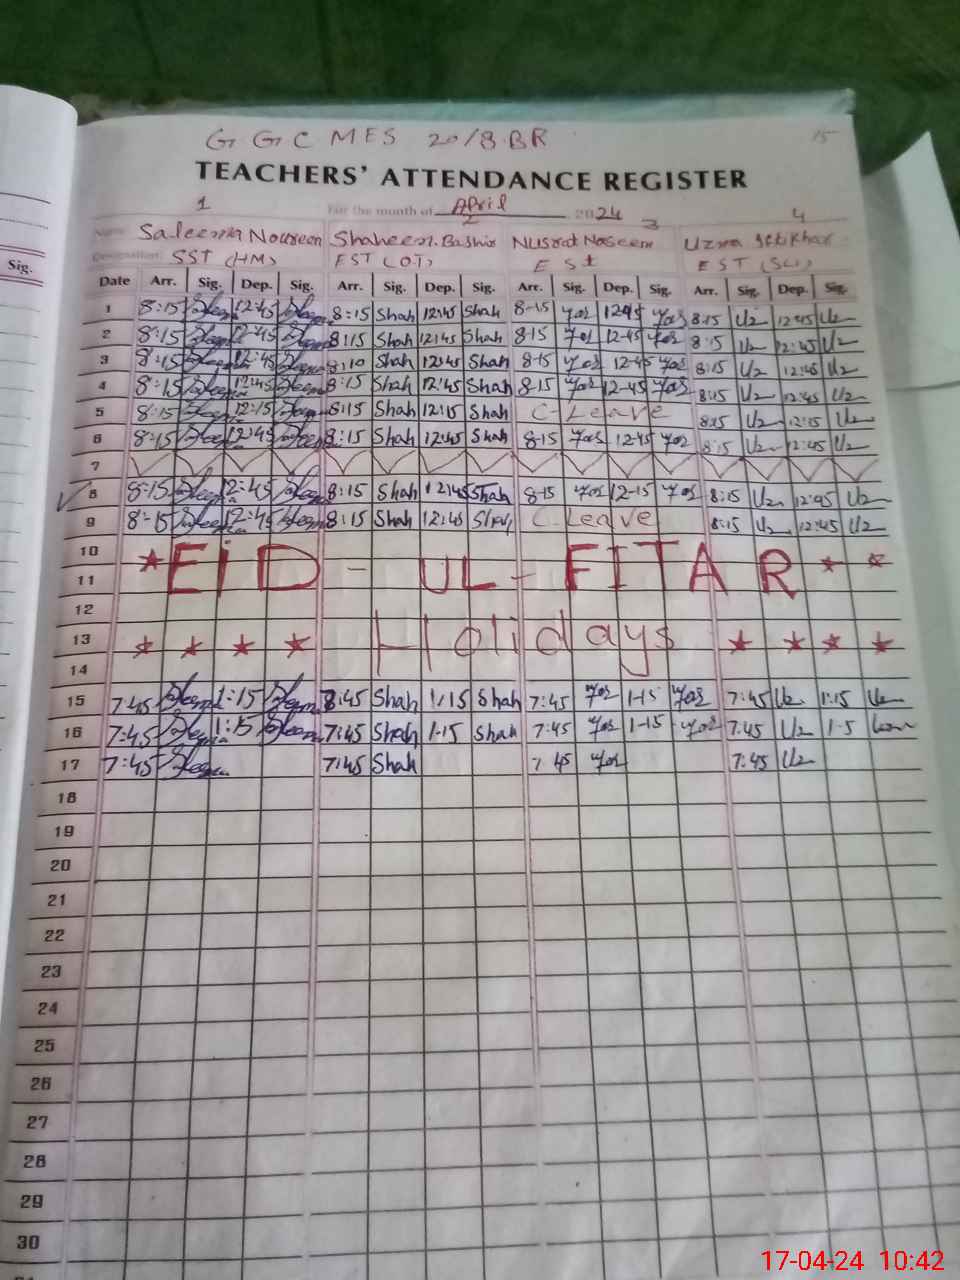 G G C MES 20/8.BR
15
TEACHERS' ATTENDANCE REGISTER
1 2 3 4
For the month of April 2024
Name Saleema Noureen Shaheen Bashir Nusrat Naseem Uzma Iftikhar
Designation SST (HM) EST (OT) EST EST (SCI)
Sig.
Date Arr. Sig. Dep. Sig. Arr. Sig. Dep. Sig. Arr. Sig. Dep. Sig. Arr. Sig. Dep. Sig.
1 8:15 12:45 8:15 Shah 12:45 Shah 8-15 1245 8:15 Uz 12:45 Uz
2 8:15 12:45 8:15 Shah 12:45 Shah 8-15 12-45 8:15 Uz 12:45 Uz
3 8:15 12:45 8:10 Shah 12:45 Shah 8-15 12-45 8:15 Uz 12:45 Uz
4 8:15 12:45 8:15 Shah 12:45 Shah 8-15 12-45 8:15 Uz 12:45 Uz
5 8:15 12:15 8:15 Shah 12:15 Shah C-Leave 8:15 Uz 12:15 Uz
6 8:15 12:45 8:15 Shah 12:45 Shah 8-15 12-45 8:15 Uz 12:45 Uz
7
8 8:15 12:45 8:15 Shah 12:45 Shah 8-15 12-15 8:15 Uz 12:45 Uz
9 8:15 12:45 8:15 Shah 12:45 Shah C-Leave 8:15 Uz 12:45 Uz
10
EID - UL - FITAR
11
12
13 Holidays
14
15 7:45 1:15 8:45 Shah 1:15 Shah 7:45 1-15 7:45 Uz 1:15 Uz
16 7:45 1:15 7:45 Shah 1-15 Shah 7:45 1-15 7:45 Uz 1-5
17 7:45 7:45 Shah 7 45 7:45 Uz
18
19
20
21
22
23
24
25
26
27
28
29
30
17-04-24 10:42